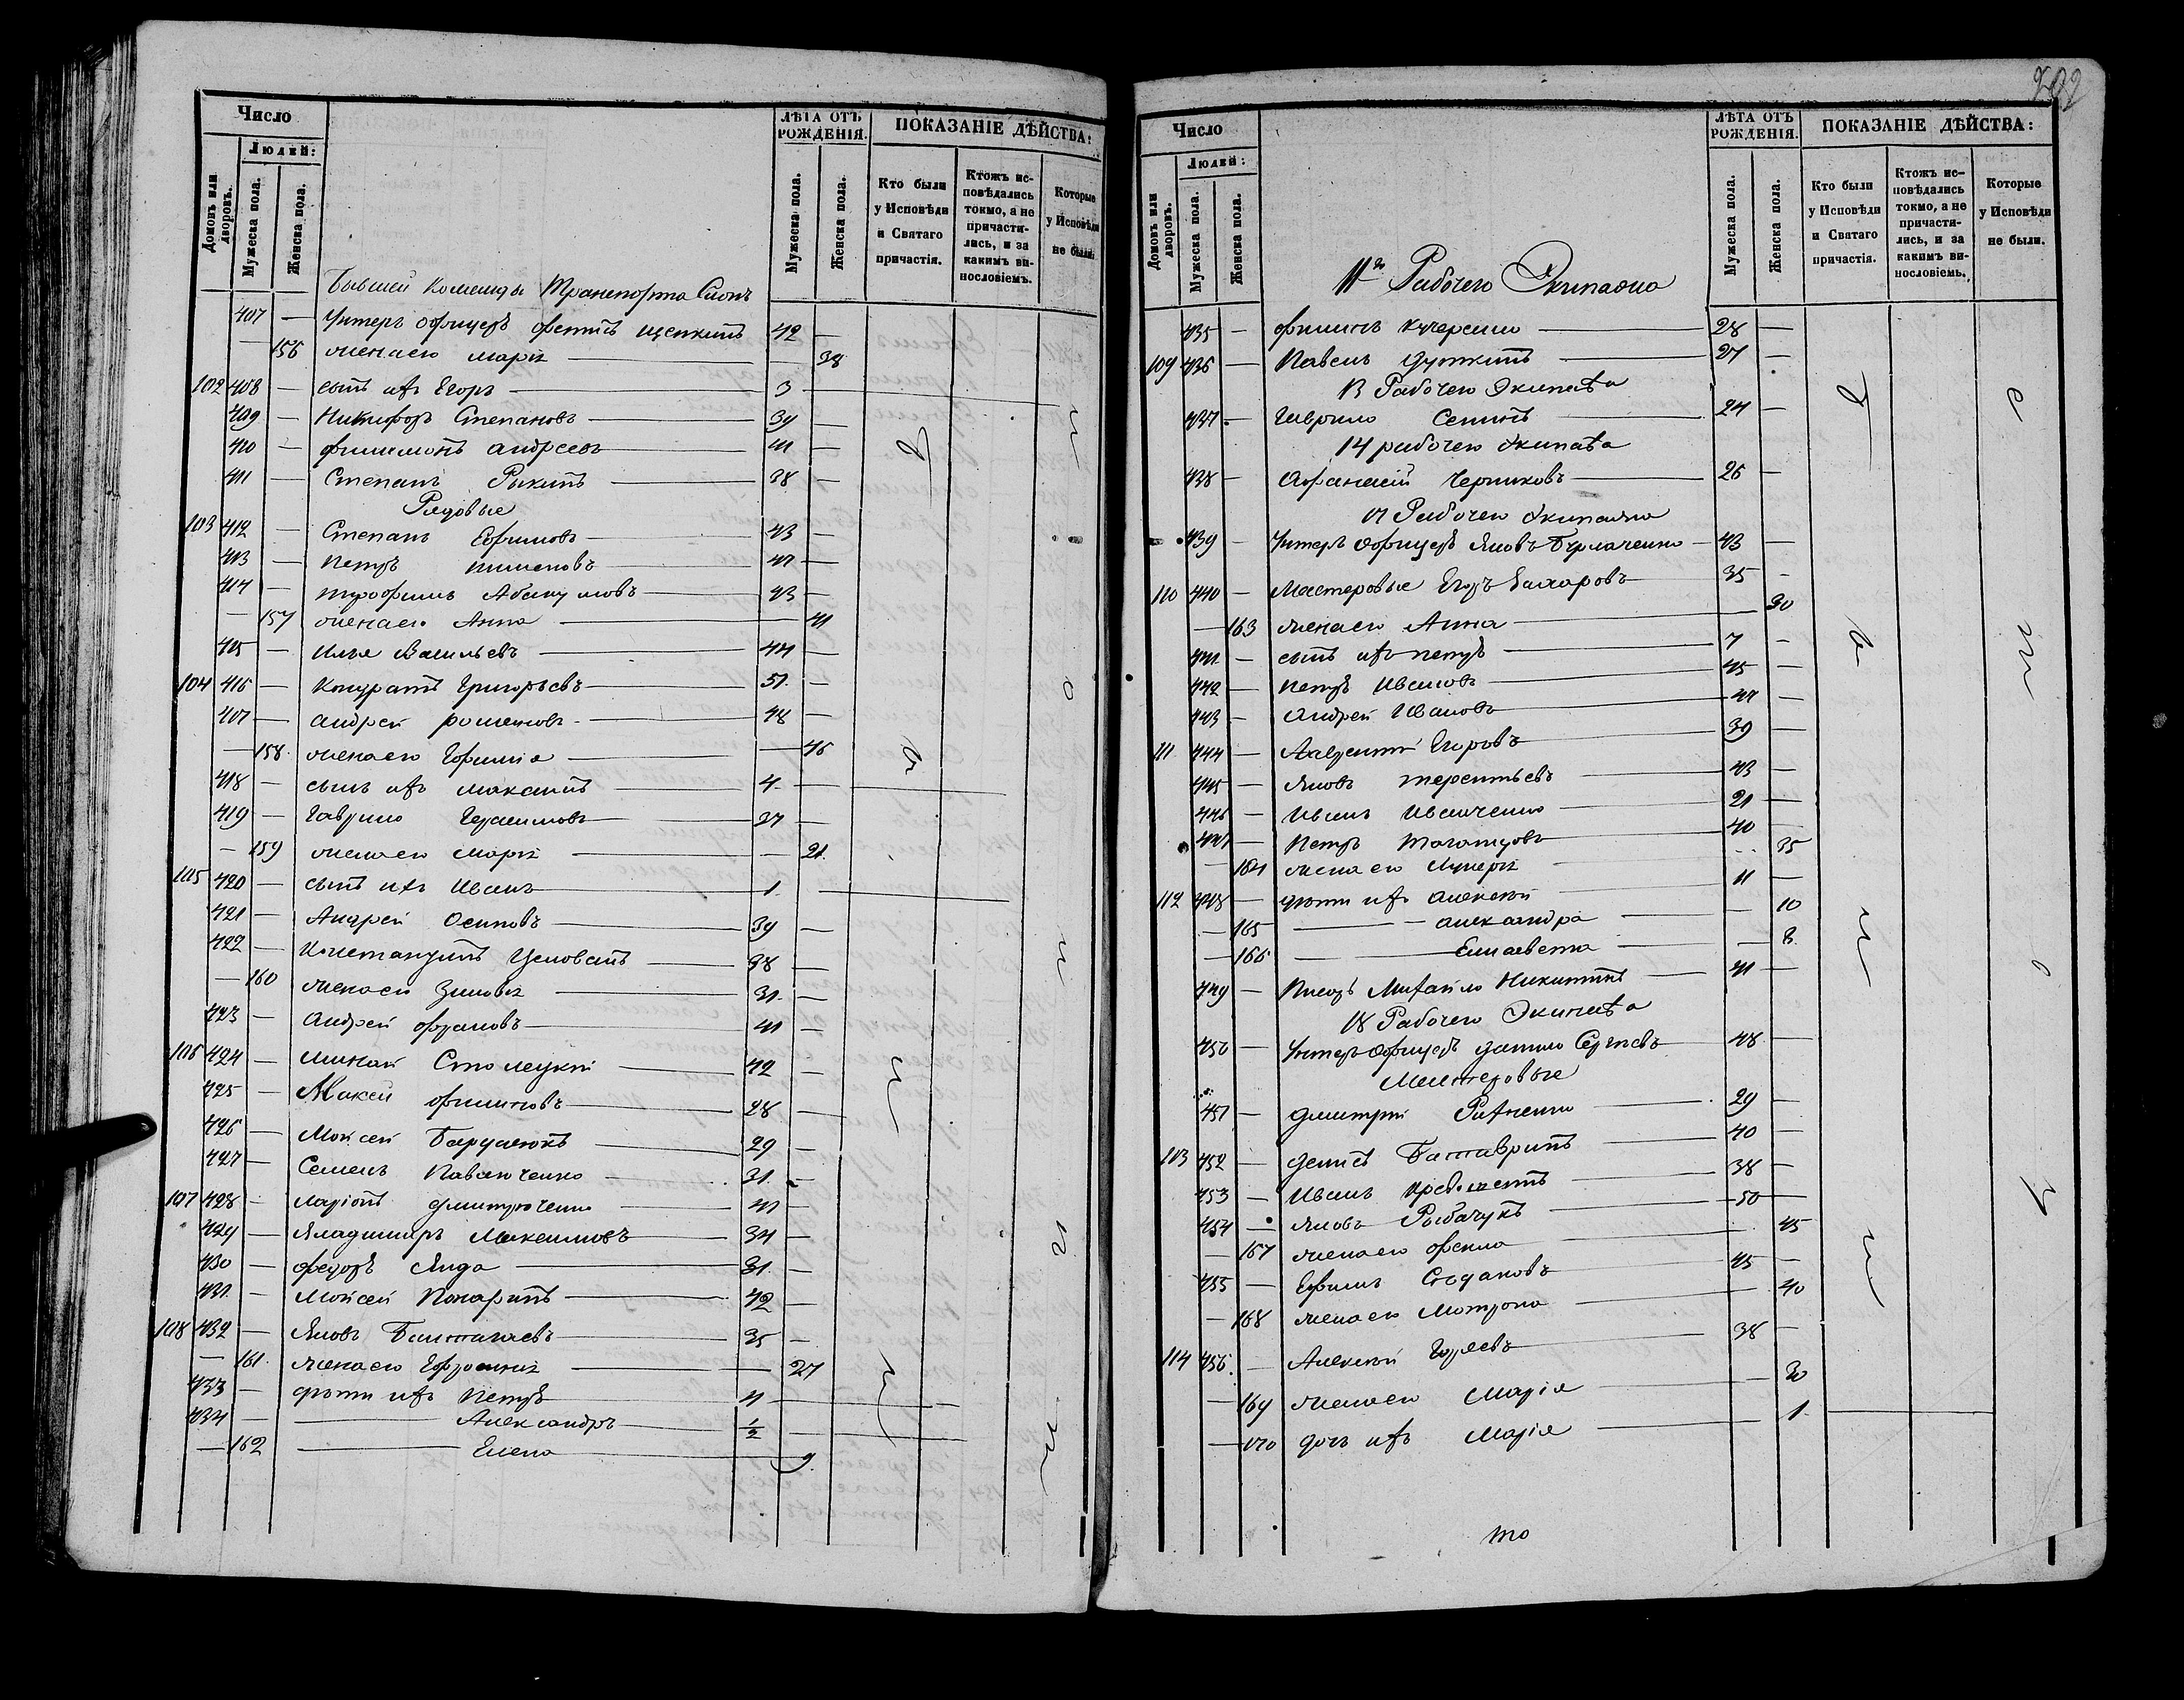 Число
Людей:
Домовъ или дворовъ.
Мужеска пола.
Женска пола.
ЛѢТА ОТЪ РОЖДЕНІЯ.
Мужеска пола.
Женска пола.
ПОКАЗАНІЕ ДѢЙСТВА:
Кто были у Исповѣди и Святаго причастія.
Ктожъ исповѣдались токмо, а не причастились, и за какимъ винословіемъ.
Которые у Исповѣди не были.
Бывшей Команды Транспорта Слонъ
407 — Унтеръ офицеръ Фетисъ Щепкинъ 42 —
— 156 жена его Марія — 38
102 408 — сынъ ихъ Егоръ 3
409 — Никифоръ Степановъ 39 —
410 — Филимонъ Андреевъ 41 —
411 — Степанъ Рыкинъ 38 —
Рядовые
103 412 — Степанъ Ефимовъ 43 —
413 — Петръ Пименовъ 47 —
414 — Трофимъ Абакумовъ 43 —
— 157 жена его Анна — 41
415 — Илья Васильевъ 44 —
104 416 — Кондратъ Григорьевъ 51 —
417 — Андрей Романовъ 48 —
— 158 жена его Ефимія — 46
418 — сынъ ихъ Максимъ 4
419 — Гаврило Герасимовъ 27 —
— 159 жена его Марія — 21
105 420 — сынъ ихъ Иванъ 1
421 — Андрей Осиповъ 39 —
422 — Константинъ 38 —
— 160 жена его Зиновія 31 —
423 — Андрей 41 —
106 424 — Минай 42 —
425 — Филиповъ 28 —
426 — Моисей 29 —
427 — Семенъ Павлюченко 31 —
107 428 — Ларіонъ Дмитрюченко 41 —
429 — Владимиръ Максимовъ 34 —
430 — Федоръ 31 —
431 — Моисей 42 —
108 432 — Яковъ 35 —
— 161 жена его Ефросинія — 27
433 — дѣти ихъ Петръ 4
434 — Александръ ½
— 162 Елена 9
292
Число
Людей:
Домовъ или дворовъ.
Мужеска пола.
Женска пола.
ЛѢТА ОТЪ РОЖДЕНІЯ.
Мужеска пола.
Женска пола.
ПОКАЗАНІЕ ДѢЙСТВА:
Кто были у Исповѣди и Святаго причастія.
Ктожъ исповѣдались токмо, а не причастились, и за какимъ винословіемъ.
Которые у Исповѣди не были.
11го Рабочего Экипажа
435 — Филипъ Кучеренко 28 —
109 436 — Павелъ Дуткинъ 27 —
13 Рабочего Экипажа
437 — Гаврило Сенинъ 24 —
14 рабочего экипажа
438 — Афанасій Черниковъ 26 —
17 Рабочего экипажа
439 — Унтеръ Офицеръ Яковъ Бурлаченко 43 —
110 440 — Мастеровые Егоръ Захаровъ 35 —
— 163 жена его Анна 30
441 — сынъ ихъ Петръ 7 —
442 — Петръ Ивановъ 45 —
443 — Андрей Ивановъ 47 —
111 444 — Лаврентій Егоровъ 39 —
445 — Яковъ Терентьевъ 43 —
446 — Иванъ Иванченко 21 —
447 — Петръ 40
— 164 жена его Лукерія 35
112 448 — дѣти ихъ Алексѣй 11 —
— 165 — Александра — 10
— 166 — Елисавета — 8
449 — Писарь Михайло Никитинъ 41 —
18 Рабочего Экипажа
450 — Унтеръ Офицеръ Данило Сергѣевъ 48 —
Мастеровые
451 — Дмитрій 29 —
113 452 — Денисъ 40 —
453 — Иванъ 38 —
454 — Яковъ Рыбачукъ 50 —
— 167 жена его Фекла — 45
455 — Ефимъ 45 —
— 168 жена его Мотрона — 40
114 456 — Алексѣй 38 —
— 169 жена его Марія — 30
— 170 дочь ихъ Марія — 1
то